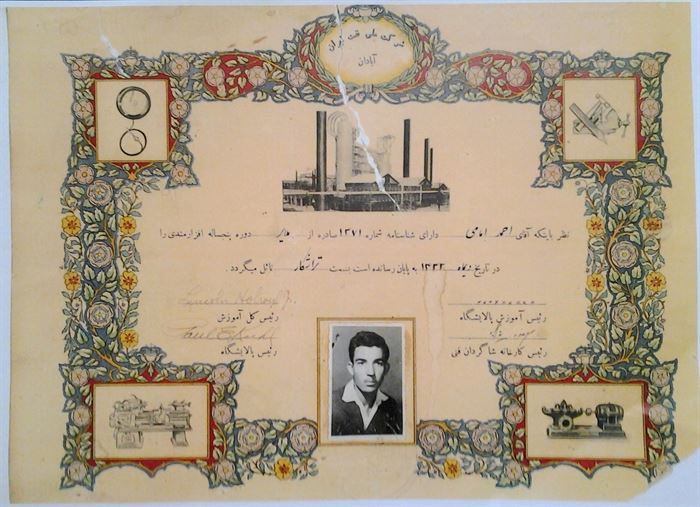 شرکت ملی نفت ایران
آبادان
نظر باینکه آقای احمد امامی دارای شناسنامه شماره ۱۳۷۱ صادره از ملایر دوره پنجساله افزارمندی را
در تاریخ دیماه ۱۳۳۳ به پایان رسانده است بسمت تراشکار نائل میگردد .
Lincoln
رئیس آموزش پالایشگاه رئیس کل آموزش
Paul
رئیس کارخانه شاگردان فنی رئیس پالایشگاه